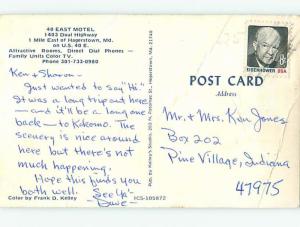 40 EAST MOTEL
1403 Dual Highway
1 Mile East of Hagerstown, Md.
on U.S. 40 E.
Attractive Rooms, Direct Dial Phones -
Family Units Color TV.
Phone 301-733-0980
Ken & Sharon -
Just wanted to say "Hi".
It was a long trip out here
- and it'll be a long one
back - to Kokomo. The
scenery is nice around
here but there's not
much happening.
Hope this finds you
both well. See Ya -
Dave -
Color by Frank D. Kelley
ICS-105872
Pub by Kelley's Studio, 202 N. Prospect St., Hagerstown, Md. 21740
EISENHOWER USA
POST CARD
Address
Mr. + Mrs. Ken Jones
Box 202
Pine Village, Indiana
47975